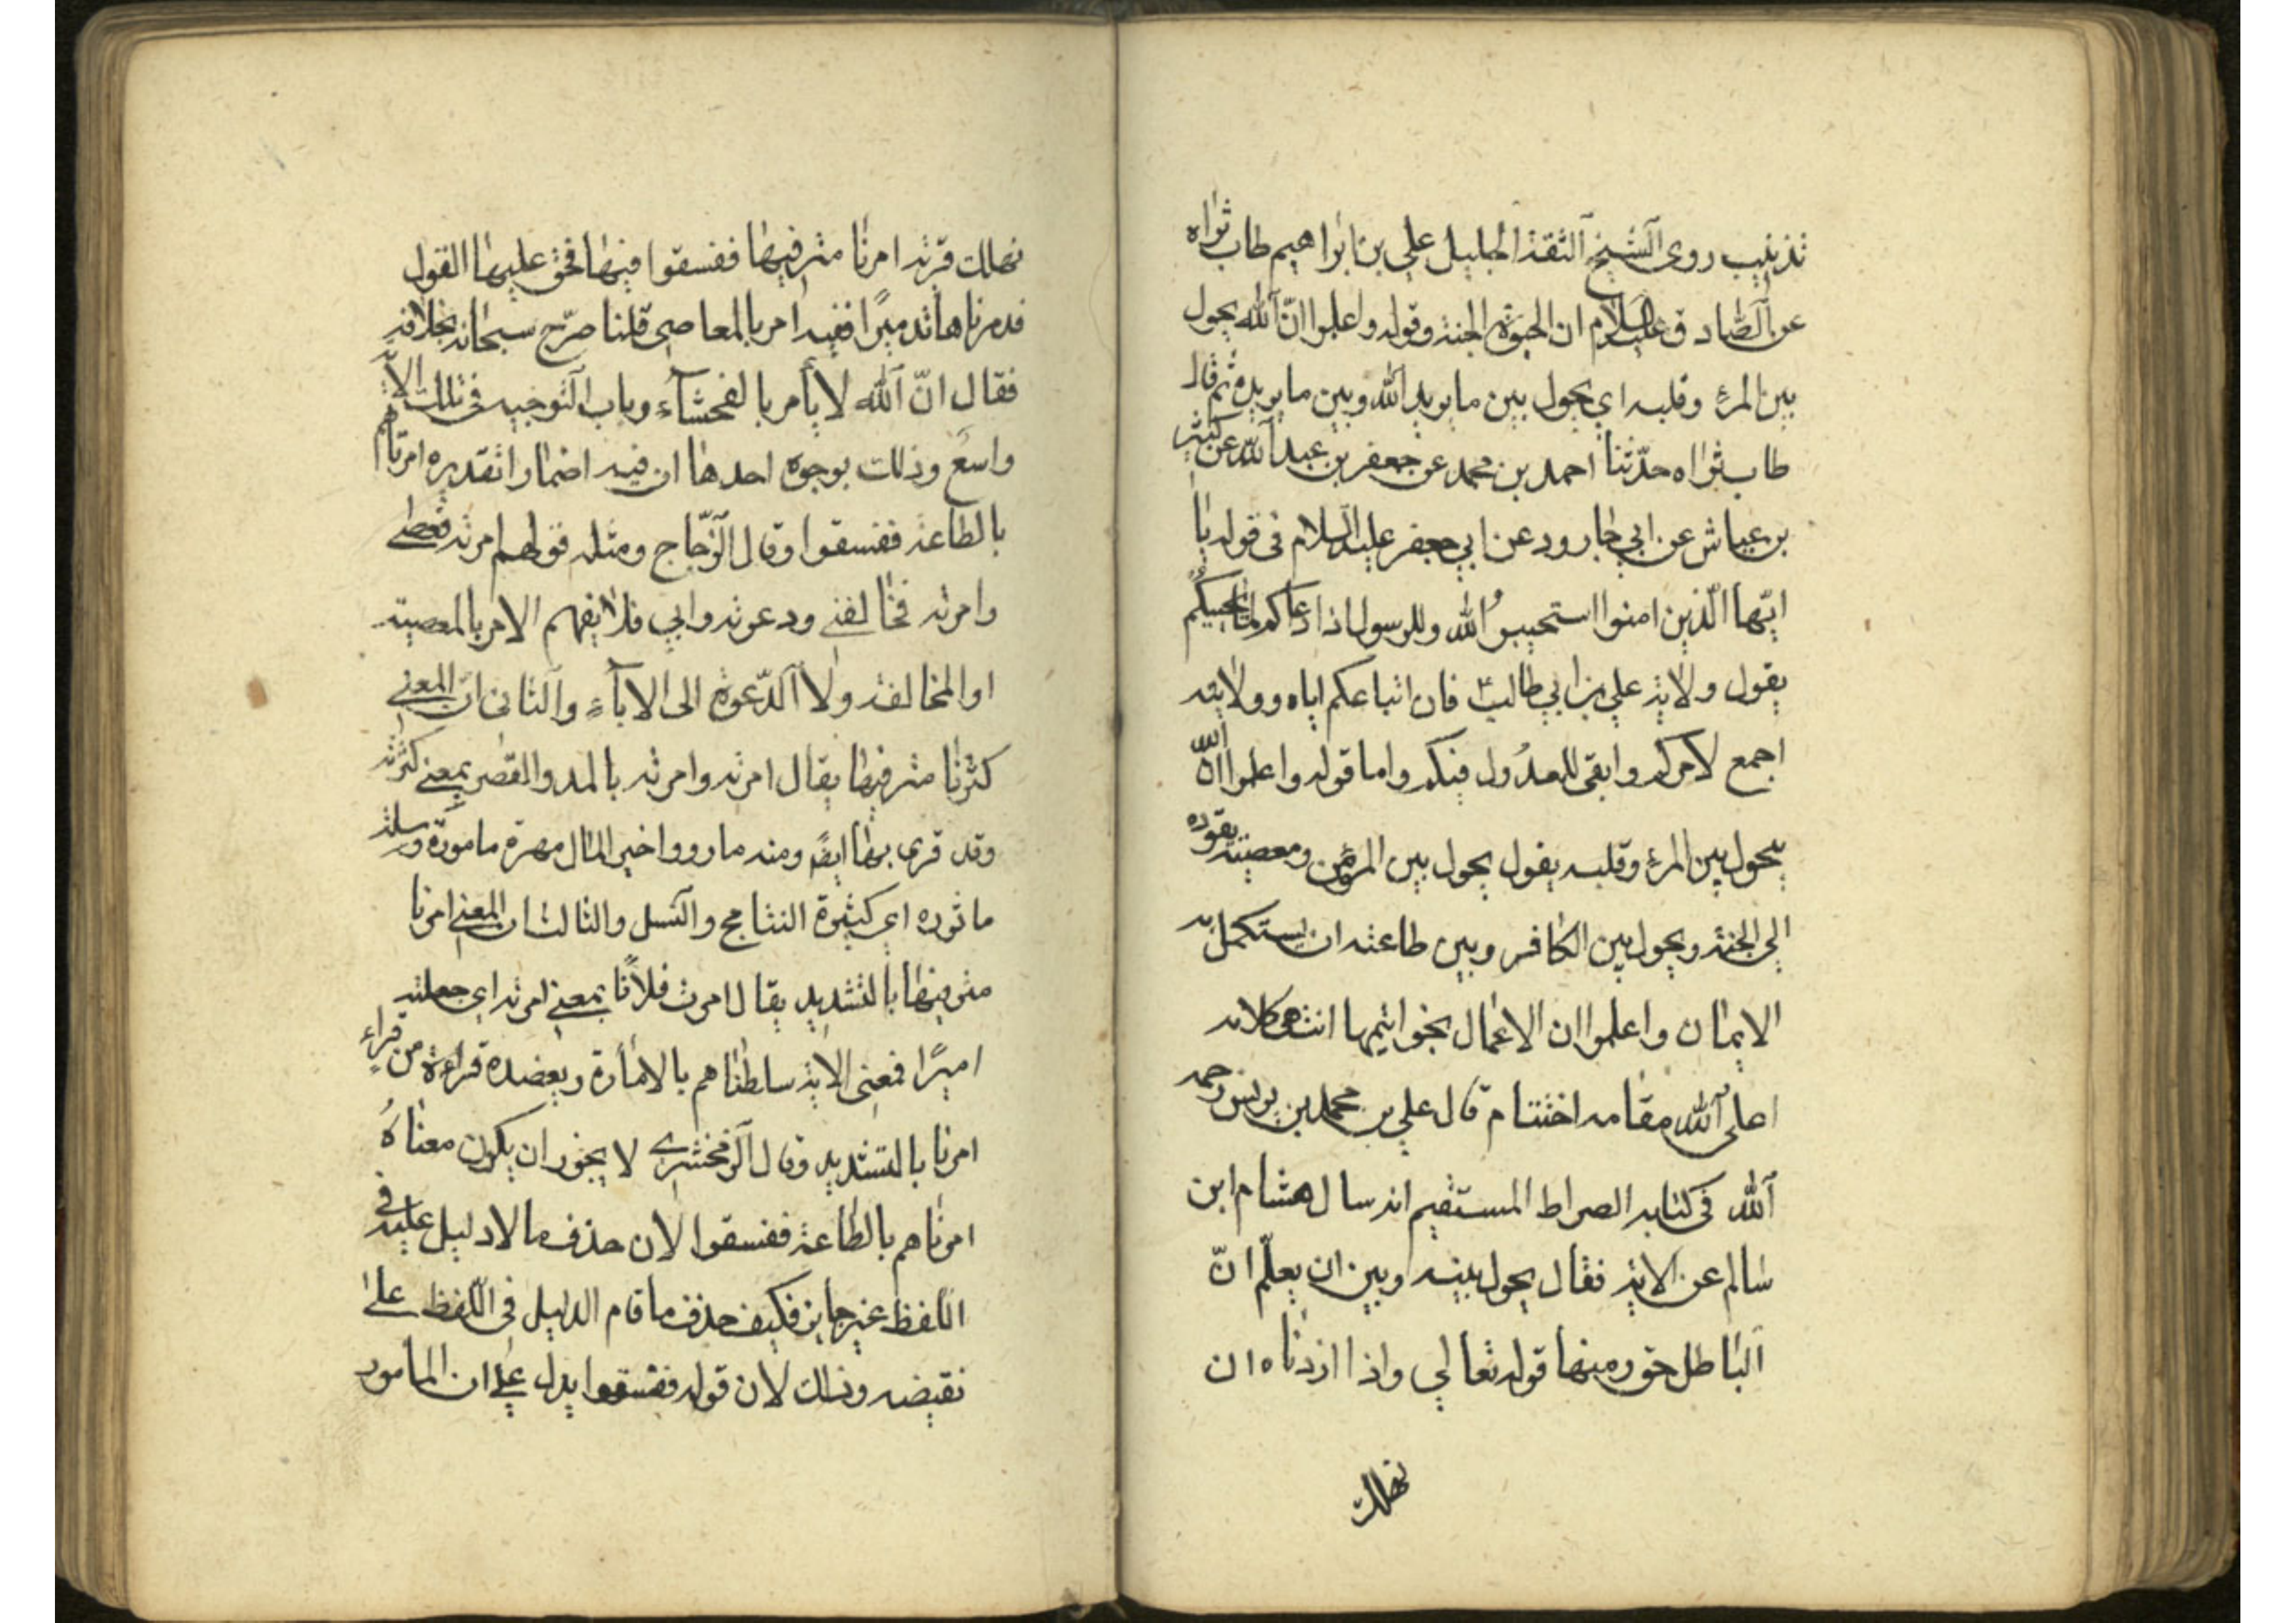 تذنيب روى الشيخ الثقة الجليل علي بن ابراهيم طاب ثواه
عن الصّادق عليه السلام ان الحيوة الجنة وقوله واعلموا انّ الله يحول
بين المرءِ وقلبه اي يحول بين ما يريد الله وبين ما يريده ثم قال
طاب ثواه حدّثنا احمد بن محمد عن جعفر بن عبد الله عن كثير
بن عياش عن ابي جارود عن ابي جعفر عليه السلام فى قوله يا
ايّها الّذين امنوا استجيبوا لله وللرسول اذا دعاكم لما يحييكم
يقول ولاية علي بن ابي طالب فان اتباعكم اياه وولايته
اجمع لامركم وابقى للعدُول فيكم واما قوله واعلموا انّ الله
يحول بين المرءِ وقلبه يقول يحول بين المرء المؤمن ومعصيته يقوده
الي الجنة ويحول بين الكافر وبين طاعته ان يستكمل به
الايمان واعلموا ان الاعمال بخواتيمها انتهى كلامه
اعلى الله مقامه اختتام قال علي بن محمد بن يونس رحمه
الله فى كتابه الصراط المستقيم انه سال هشام ابن
سالم عن الاية فقال يحول بينه وبين ان يعلّم انّ
الباطل حق ومنها قوله تعالي واذا اردناه ان
نهلك
نهلك قرية امرنا مترفيها ففسقوا فيها فحق عليها القول
فدمرناها تدميرًا ففيه امر بالمعاصى قلنا صرّح سبحانه بخلافه
فقال انّ الله لا يأمر بالفحشآءِ وباب التوجيه فى تلك الاية
واسع وذلك بوجوه احدها ان فيه اضمارا تقديره امرناهم
بالطاعة ففسقوا وقال الزجّاج ومثله قولهم امرته فعصى
وامرته فخالفنى ودعوته وابي فلا يفهم الامر بالمعصية
او المخالفة ولا الدّعوة الى الابآءِ والثانى انّ المعنى
كثرنا مترفيها يقال امرته وامرته بالمد والقصر بمعنى كثرته
وقد قري بها ايضً ومنه ما رووا خير المال مهرة مامورة وسكة
ماثوره اي كثيرة النتاج والنسل والثالث ان المعنى امرنا
مترفيها بالتشديد يقال امرت فلانًا بمعنى امرته اي جعلته
اميرًا فمعنى الاية سلطناهم بالامارة ويعضده قراءة من قراء
امرنا بالتشديد وقال الزمخشري لا يجوز ان يكون معناهُ
امرناهم بالطاعة ففسقوا لان حذف ما لا دليل عليه فى
اللفظ غير جايز فكيف حذف ما قام الدليل فى اللفظ على
نقيضه وذلك لان قوله ففسقوا يدل على ان المأمور